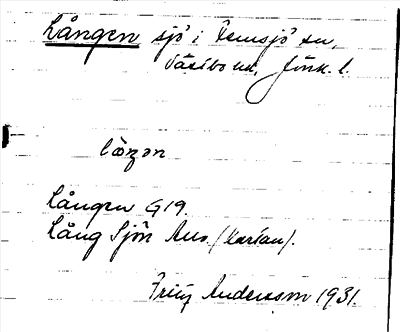 Lången sjö i Femsjö sn,
Västbo hd, Jönk. l.
låŋən
Lången G19.
Lång Sjön Ans. (kartan).
Fritz Andersson 1931.